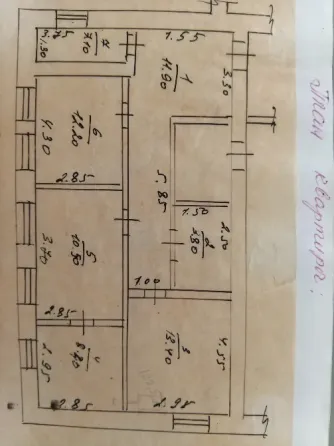 План квартира:
3.75
1.90
7
7.10
1.55
1
11.90
3.30
4.30
6
12.20
2.85
5.85
1.50
2
3.80
2.50
3.70
5
10.50
2.85
1.00
4
8.40
2.95
2.85
3
13.40
4.55
2.98